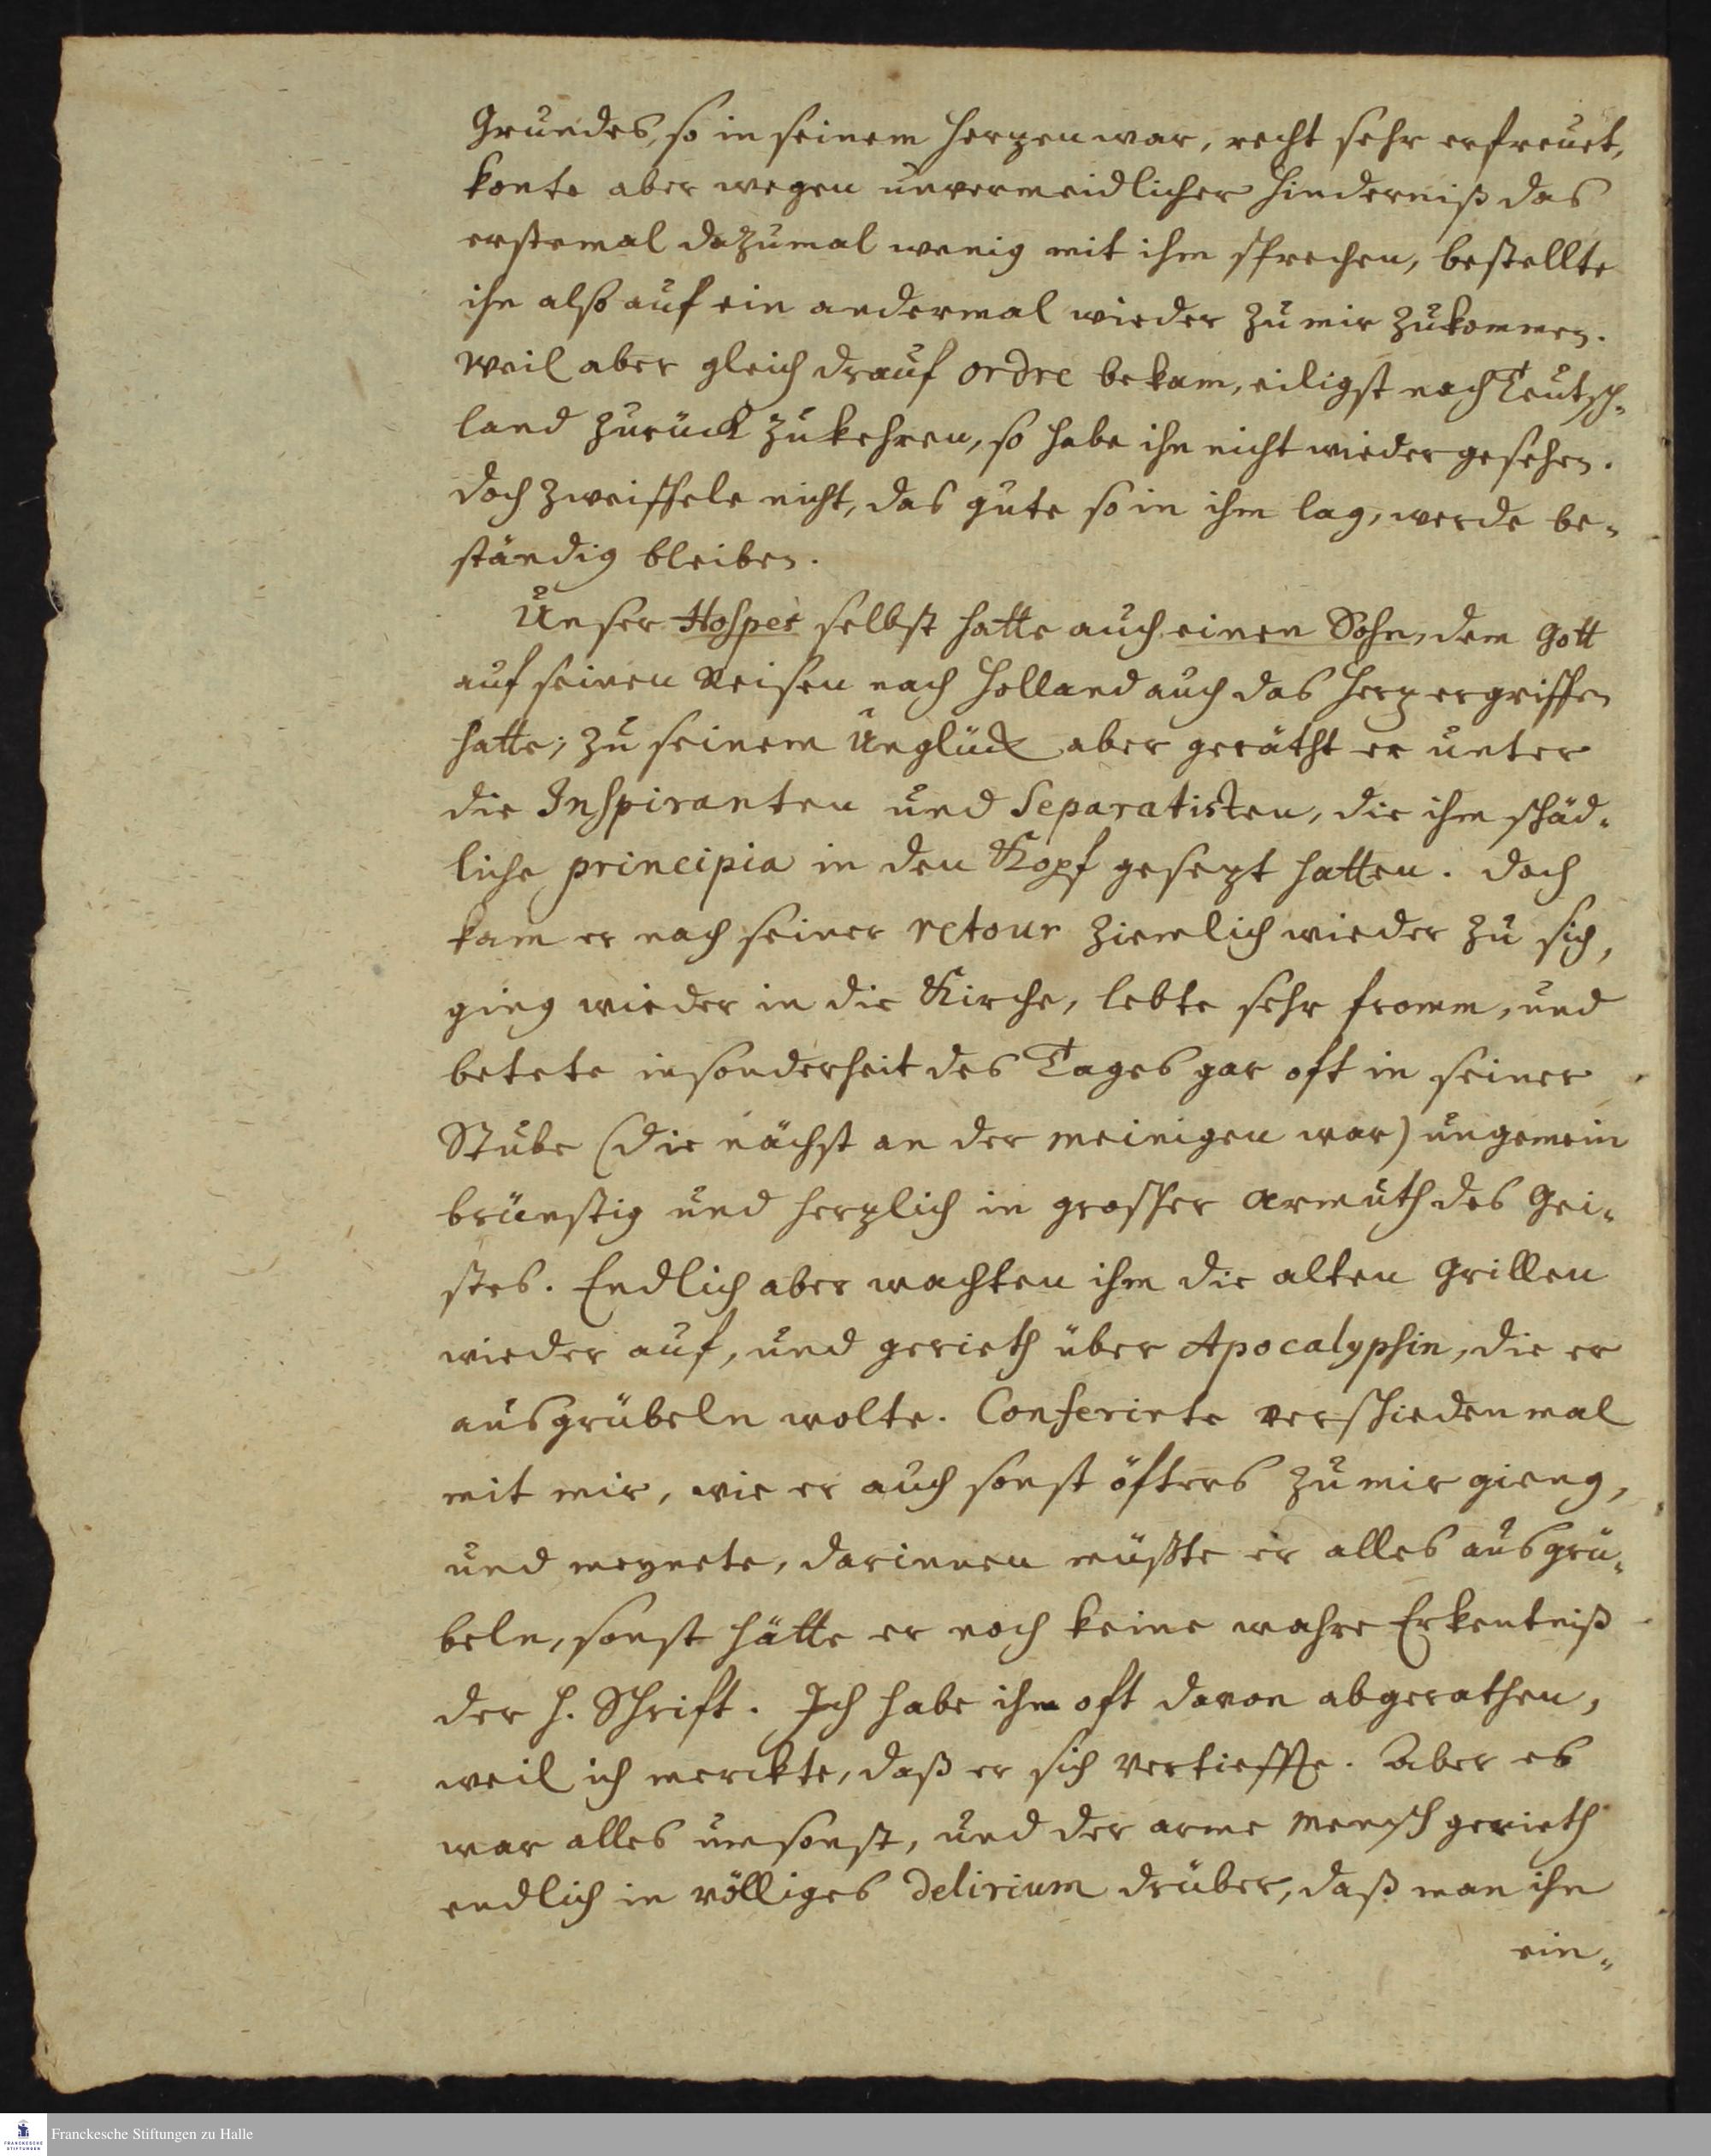 Grundes, so in seinem Herzen war, recht sehr erfreuet,
konte aber wegen unvermeidlicher Hinderniß das
erstemal dazumal wenig mit ihm sprechen, bestellte
ihn also auf ein andermal wieder zu mir zukommen.
Weil aber gleich drauf ordre bekam, eiligst nach Teutsch-
land zurück zukehren, so habe ihn nicht wieder gesehen.
Doch zweiffele nicht, das gute so in ihm lag, werde be-
ständig bleiben.
Unser Hospes selbst hatte auch einen Sohn, dem Gott
auf seinen Reisen nach Holland auch das Herz ergriffen
hatte; zu seinem Unglück aber geräth er unter
die Inspiranten und Separatisten, die ihm schäd-
liche principia in den Kopf gesezt hatten. Doch
kam er nach seiner retour ziemlich wieder zu sich,
ging wieder in die Kirche, lebte sehr fromm, und
betete insonderheit des Tages gar oft in seiner
Stube (die nächst an der meinigen war) ungemein
brünstig und herzlich in grosser Armuth des Gei-
stes. Endlich aber wachten ihm die alten Grillen
wieder auf, und gerieth über Apocalypsin, die er
ausgrübeln wolte. Conferirte verschiedenmal
mit mir, wie er auch sonst öfters zu mir gieng,
und meynete, darinnen müßte er alles ausgrü-
beln, sonst hätte er noch keine wahre Erkentniß
der H. Schrift. Ich habe ihm oft davon abgerathen,
weil ich merckte, daß er sich vertieffte. Aber es
war alles umsonst, und der arme Mensch gerieth
endlich in völliges Delirium drüber, daß man ihn
ein-
Franckesche Stiftungen zu Halle
FRANCKESCHE
STIFTUNGEN